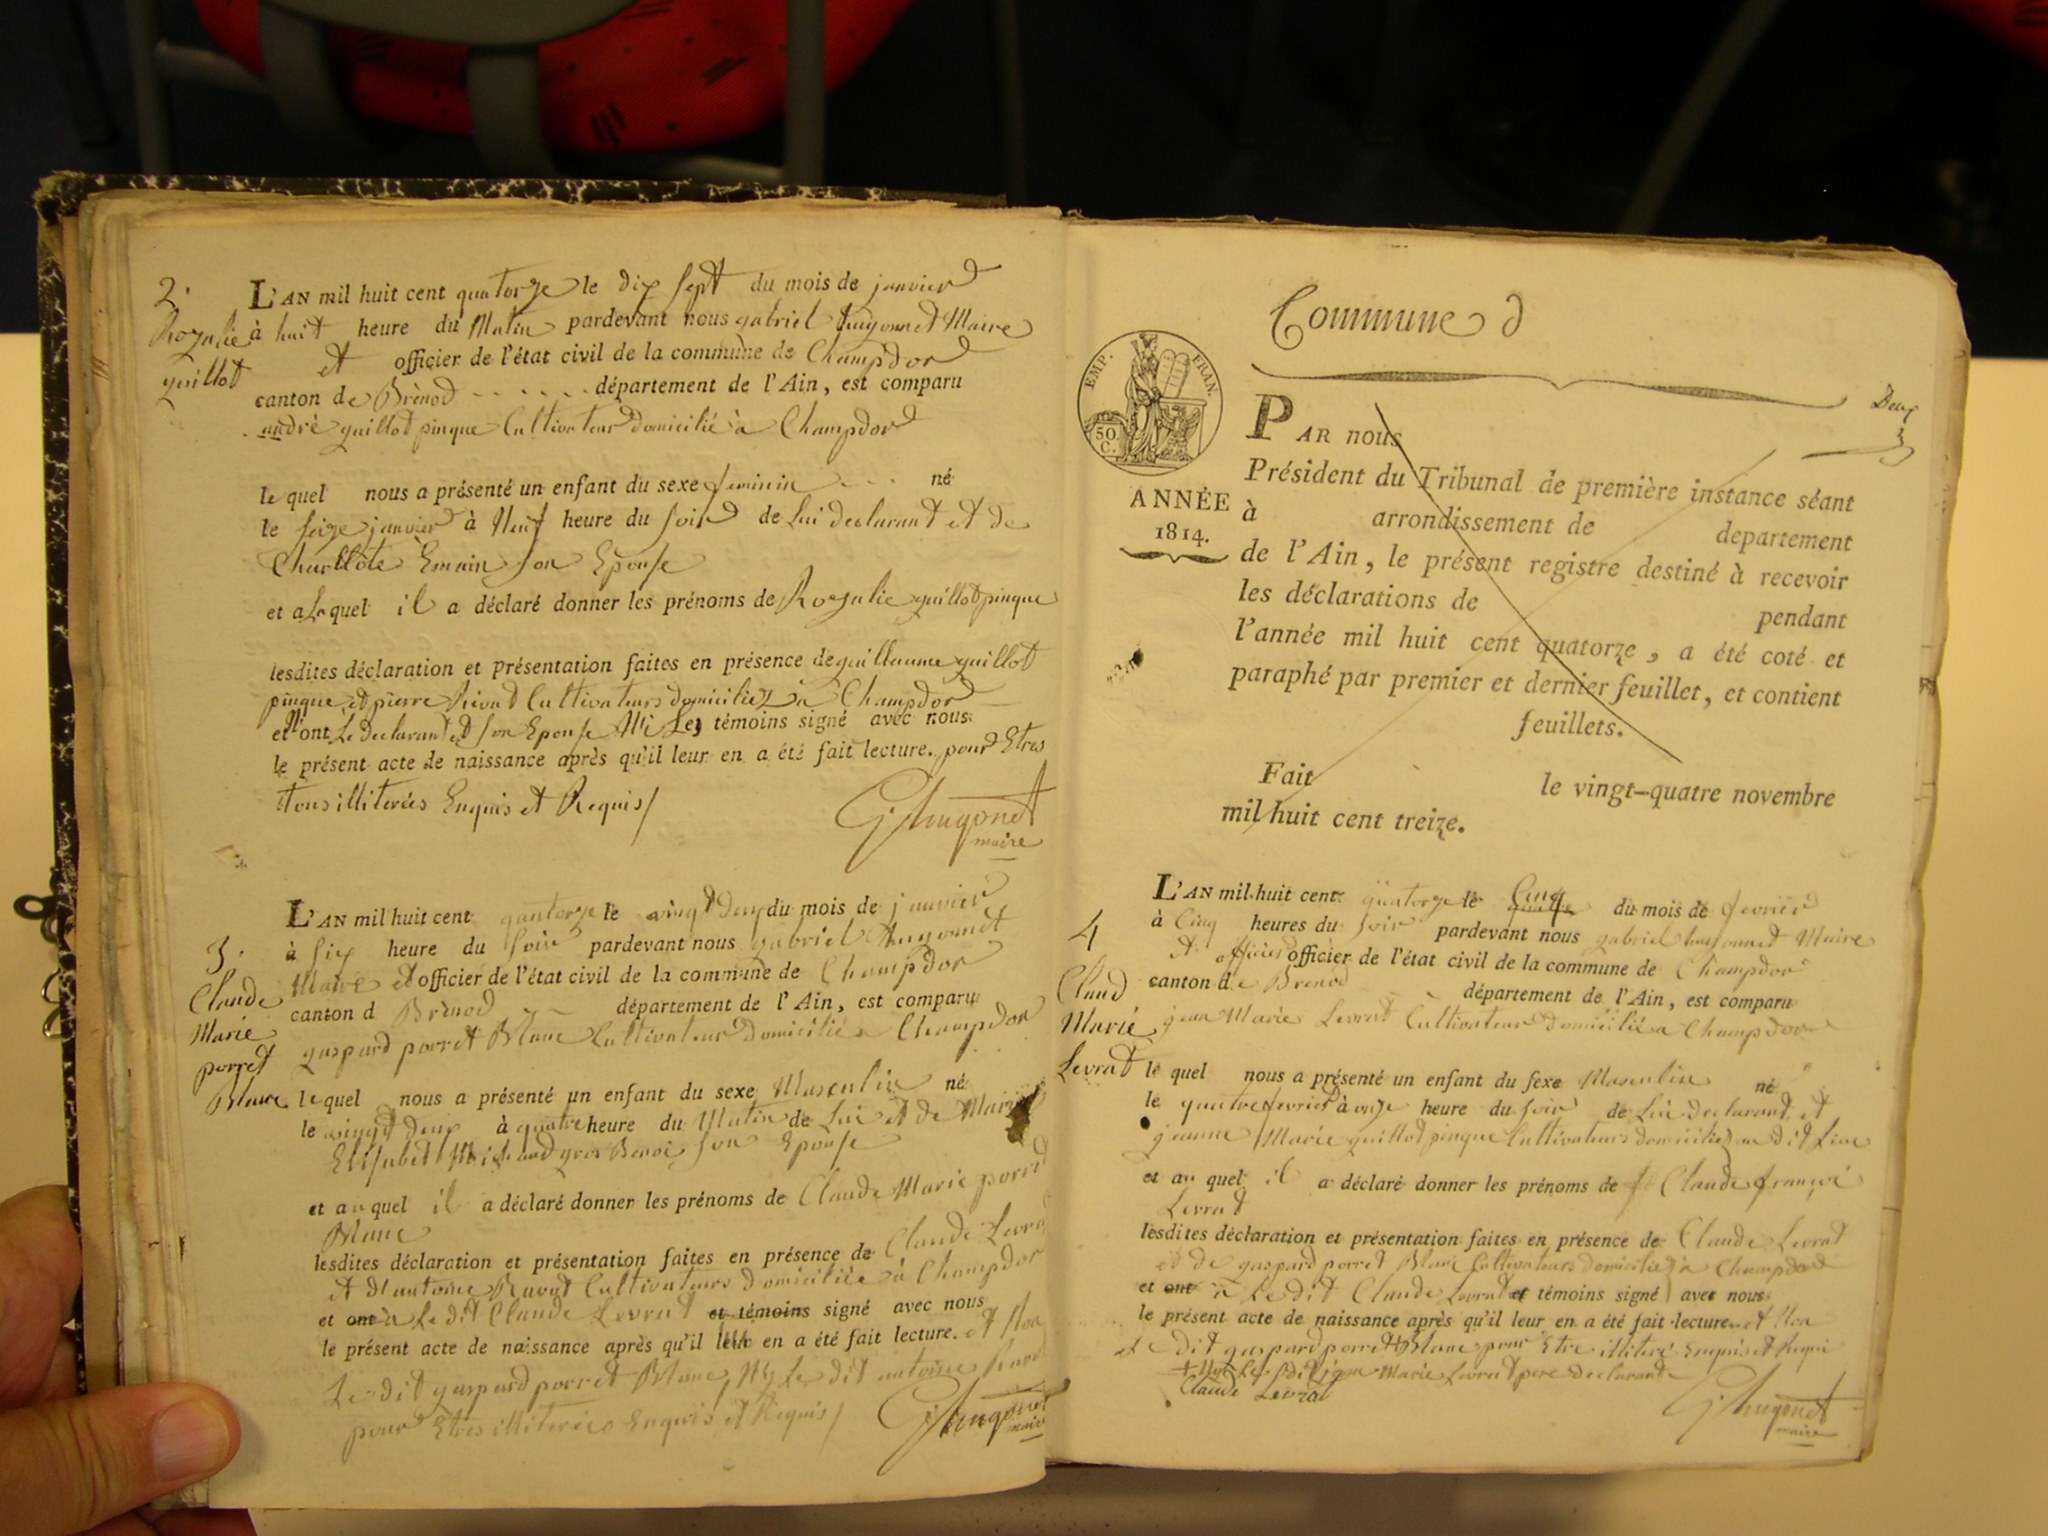 2.
Rozalie
guillot
L'AN mil huit cent quatorze le dix sept du mois de janvier
à huit heure du Matin pardevant nous gabriel hugonnet Maire
et officier de l'état civil de la commune de Champdor
canton de Brènod département de l'Ain, est comparu
andrè guillot pinque Cultivateur domicilié à Champdor
le quel nous a présenté un enfant du sexe feminin né
le seize janvier à Neuf heure du soir de Lui declarant et de
Charllote Emain son Epouse
et a Le quel il a déclaré donner les prénoms de Rozalie guillot pinque
lesdites déclaration et présentation faites en présence de guillaume guillot
pinque et pierre Cultivateurs domiciliez à Champdor
et ont Le declarant et son Epouse Ni Les témoins signé avec nous
le présent acte de naissance après qu'il leur en a été fait lecture. pour Etres
tous illiterés Enquis et Requis/
G. hugonet
maire
3.
Claude
Marie
porret
Blanc
L'AN mil huit cent quatorze le vingt deux du mois de janvier
à six heure du soir pardevant nous gabriel hugonnet
Maire et officier de l'état civil de la commune de Champdor
canton d Brènod département de l'Ain, est comparu
gaspard porret Blanc Cultivateur domicilié a Champdor
le quel nous a présenté un enfant du sexe Masculin né
le vingt deux à quatre heure du Matin de Lui et de Marie
Elisabet son Epouse
et au quel il a déclaré donner les prénoms de Claude Marie porret
Blanc
lesdites déclaration et présentation faites en présence de Claude Levrat
et d'antoine Ravet Cultivateurs domiciliée à Champdor
et ont a Le dit Claude Levrat et témoins signé avec nous
le présent acte de naissance après qu'il leur en a été fait lecture. et Non
Le dit gaspard porret Blanc Ny Le dit antoine Ravet
pour Etres illiterées Enquis et Requis/
G. hugonet
maire
Commune d
EMP. FRAN.
50
C.
ANNÉE
1814.
Deux
PAR nous
Président du Tribunal de première instance séant
à arrondissement de departement
de l'Ain, le présent registre destiné à recevoir
les déclarations de pendant
l'année mil huit cent quatorze, a été coté et
paraphé par premier et dernier feuillet, et contient
feuillets.
Fait le vingt-quatre novembre
mil huit cent treize.
4
Claud
Marie
Levrat
L'AN mil huit cent quatorze le Cinq du mois de fevrier
à Cinq heures du soir pardevant nous gabriel hugonnet Maire
et officier officier de l'état civil de la commune de Champdor
canton de Brenod département de l'Ain, est comparu
jean Marie Levrat Cultivateur domicilié a Champdor
le quel nous a présenté un enfant du sexe Masculin né
le quatre fevrier à onze heure du soir de Lui declarant et
jeanne Marie guillot pinque Cultivateurs domiciliez au dit Lieu
et au quel il a déclaré donner les prénoms de Claude françoi
Levrat
lesdites déclaration et présentation faites en présence de Claude Levrat
et de gaspard porret Blanc Cultivateurs domiciliez à Champdor
et ont a Le dit Claude Levrat et témoins signé avec nous
le présent acte de naissance après qu'il leur en a été fait lecture et Non
Le dit gaspard porret Blanc pour Etre illiteré Enquis et Requi
Le dit jean Marie Levrat pere declarant
Claude Levrat
G. hugonet
maire